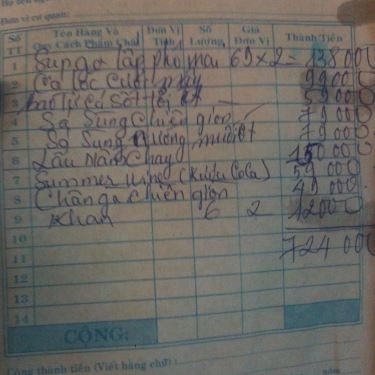 Đơn vị cơ quan:
Số TT Tên Hàng Và Quy Cách Phẩm Chất Đơn Vị Tính Số Lượng Giá Đơn Vị Thành Tiền
1 Sụn gà lắp phô mai 69 x 2 = 138 000
2 Cá lóc Cuốn 99000
3 Bao Tử cá Sốt 59 000
4 Sụn Chiên giòn 79 000
5 Sụn nướng muối ớt 79 000
6 Lẩu Nấm Chay 15 000
7 Summer Wine (Rượu Cola) 59 000
8 Chân gà chiên giòn 49 000
9 Khăn 6 2 12000
10 724 000
11
12
13
14
CỘNG:
Cộng thành tiền (Viết bằng chữ) :
năm